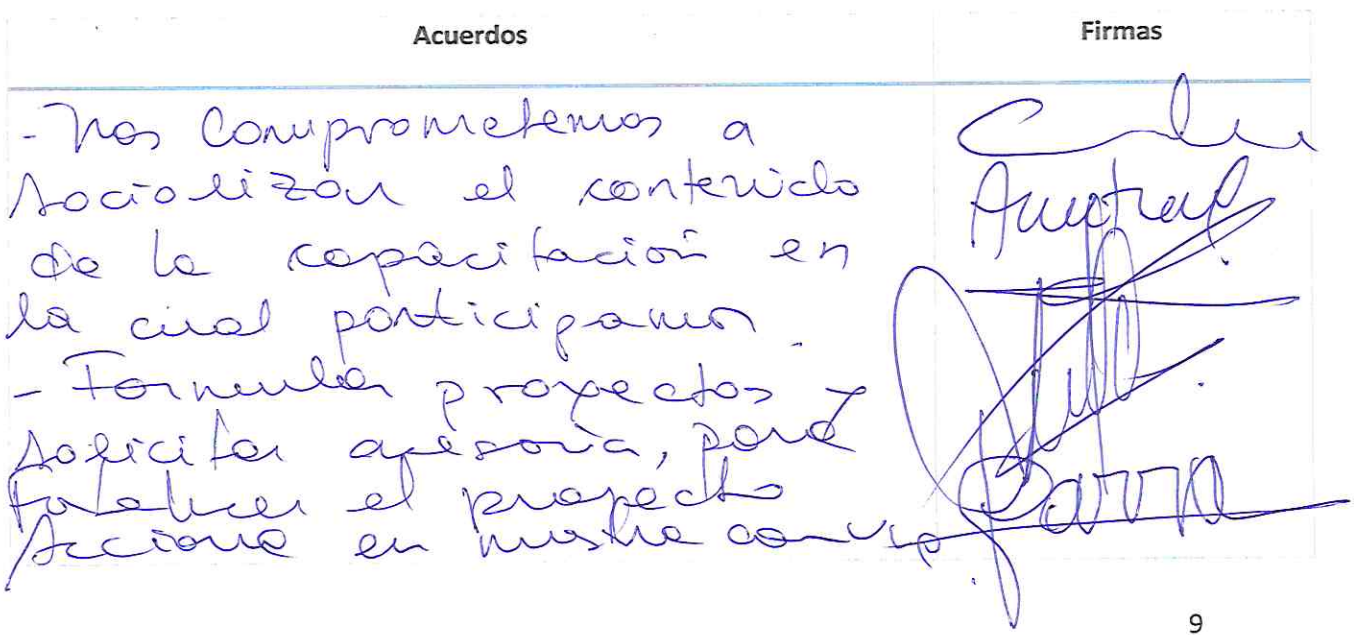 Acuerdos
Firmas
- Nos comprometemos a
socializar el contenido
de la capacitación en
la cual participamos.
- Formular proyectos y
solicitar asesoría, para
fortalecer el proyecto
Acciona en nuestra comuna
Parra
9